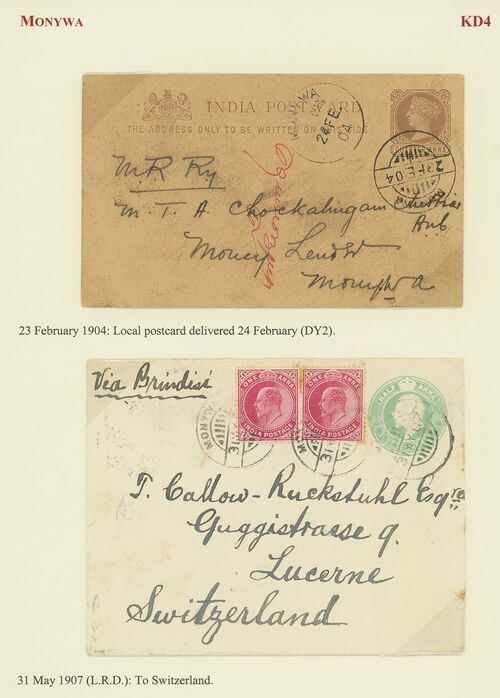 MONYWA KD4
INDIA POSTCARD
THE ADDRESS ONLY TO BE WRITTEN ON THIS SIDE
MONYWA
24 FE
04
23 FE 04
MR Ry
M. T. A. Chockalingam Chettiar
Money Lender
Monywa
23 February 1904: Local postcard delivered 24 February (DY2).
Via Brindisi
ONE ANNA ONE ANNA HALF ANNA
INDIA POSTAGE INDIA POSTAGE
MONYWA
T. Callow-Ruckstuhl Esqre
Guggistrasse 9.
Lucerne
Switzerland
31 May 1907 (L.R.D.): To Switzerland.